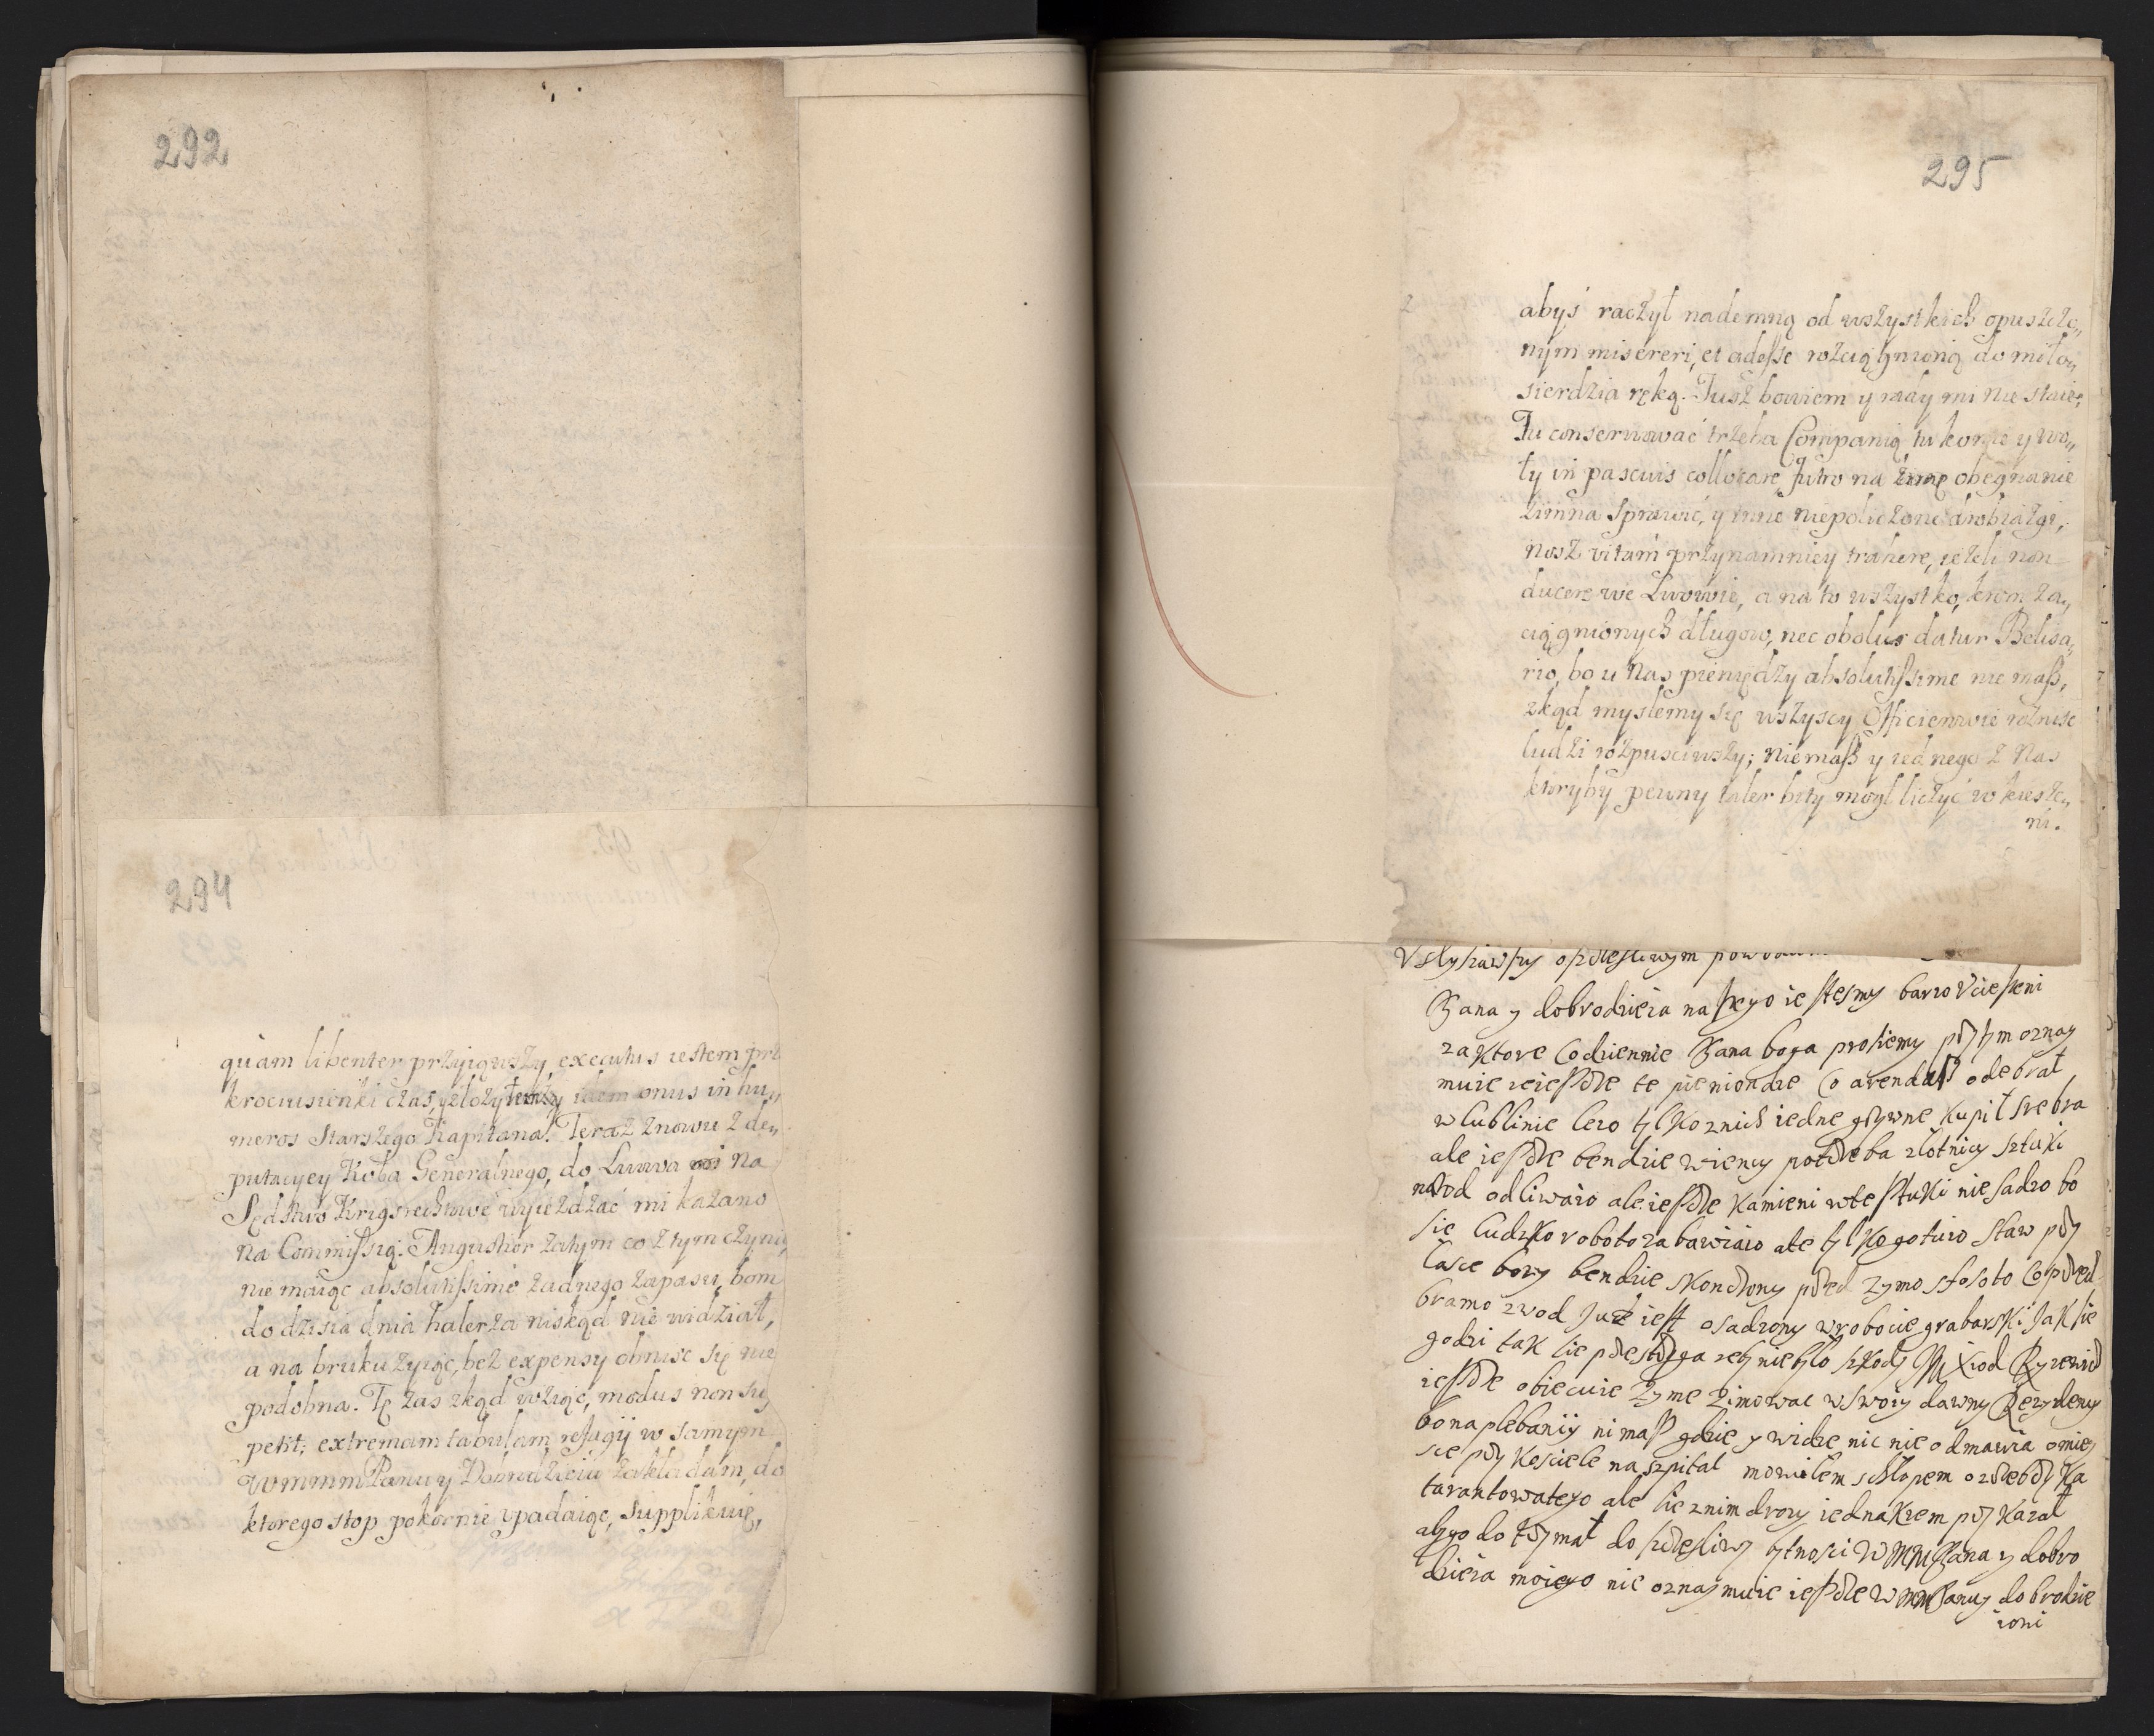 292
294
quàm libenter przyiąwszy, executus iestem prze
krociusieńki czas, y złożyłem idem onus in hu„
meros Starszego Kapitana. Teraz znowu z de„
putacyey Koła Generalnego, do Lwowa na
Sędstwo Krigsrechtowe wyieżdżać mi kazano
na Commissią. Angustior zatym co z tym czynić
nie maiąc absolutissime żadnego zapasu, bom
do dzisia dnia halerza niskąd nie widział,
a na bruku żyiąc, bez expensy obniść się nie
podobna. Tę zas zkąd wziąć, modus non sup
petit; extremam tabulam refugij w samym
WMMM Panu y Dobrodzieiu zakładam, do
ktorego stop pokornie vpadaiąc, supplikuię,
295
abyś raczył nademną od wszystkich opuszczo„
nym misereri, et adesse rozciągnioną do miło„
sierdzia ręką. Jusz bowiem y rady mi nie staie;
Tu conserwować trzeba Companią, tu konie y wo„
ły in pascuis collocare, futro na obegnanie
zimna sprawić, y inne niepoliczone drobiazgi,
nosz vitam przynamniey trahere, ieżeli non
ducere we Lwowie, a na to wszystko, krom za„
ciągnionych długow, nec obolus datur Belisa„
rio, bo u nas pieniędzy absolutissime nie masz,
zkąd myslemy się wszyscy Officierowie roznisc
ludzi rozpusciwszy; niemasz y iednego z nas
ktoryby pewny taler bity mogł liczyć w kiesze„
ni.
Vslyszawszy o szczesliwym
Pana y dobrodzieia naszego iestesmy barzo Vcieszeni
za ktore Codziennie Pana boga prosiemy przytym oznay
muie iescze te pieniondze Co arendarz odebrał
w lublinie lezo tylko znich iedne grzywne kupił srebra
ale iescze bendzie wiency potrzeba złotnicy sztuki
odliwaio ale iescze kamieni w te sztuki nie sadzo bo
sie ludzko roboto zabawiaio ale tylko gotuio staw przy
łasce bozy bendzie skonczony przed zymo Co przed
bramo zwod Juz iest osadzony w robocie grabarski Jak sie
godzi tak sie przestrzega zeby nie było szkody
iescze obiecuie zyme zimowac w swoiy dawny Rezydency
bo na plebaniy nimasz gdzie y widze nic nie odmawia o miey
sce przy kosciele na szpital mowiłem s chłopem o zrebczyka
tarantowatego ale sie znim drozy iednakzem przykazał
abygo do trzymał do szczesliwy bytnosci WMM Pana y dobro
dzieia moiego nic oznaymuie iescze WMM Panuy dobrodzie
iowi